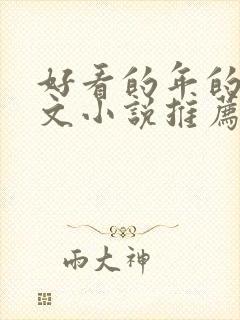 好看的年的
文小說推薦
雨大神